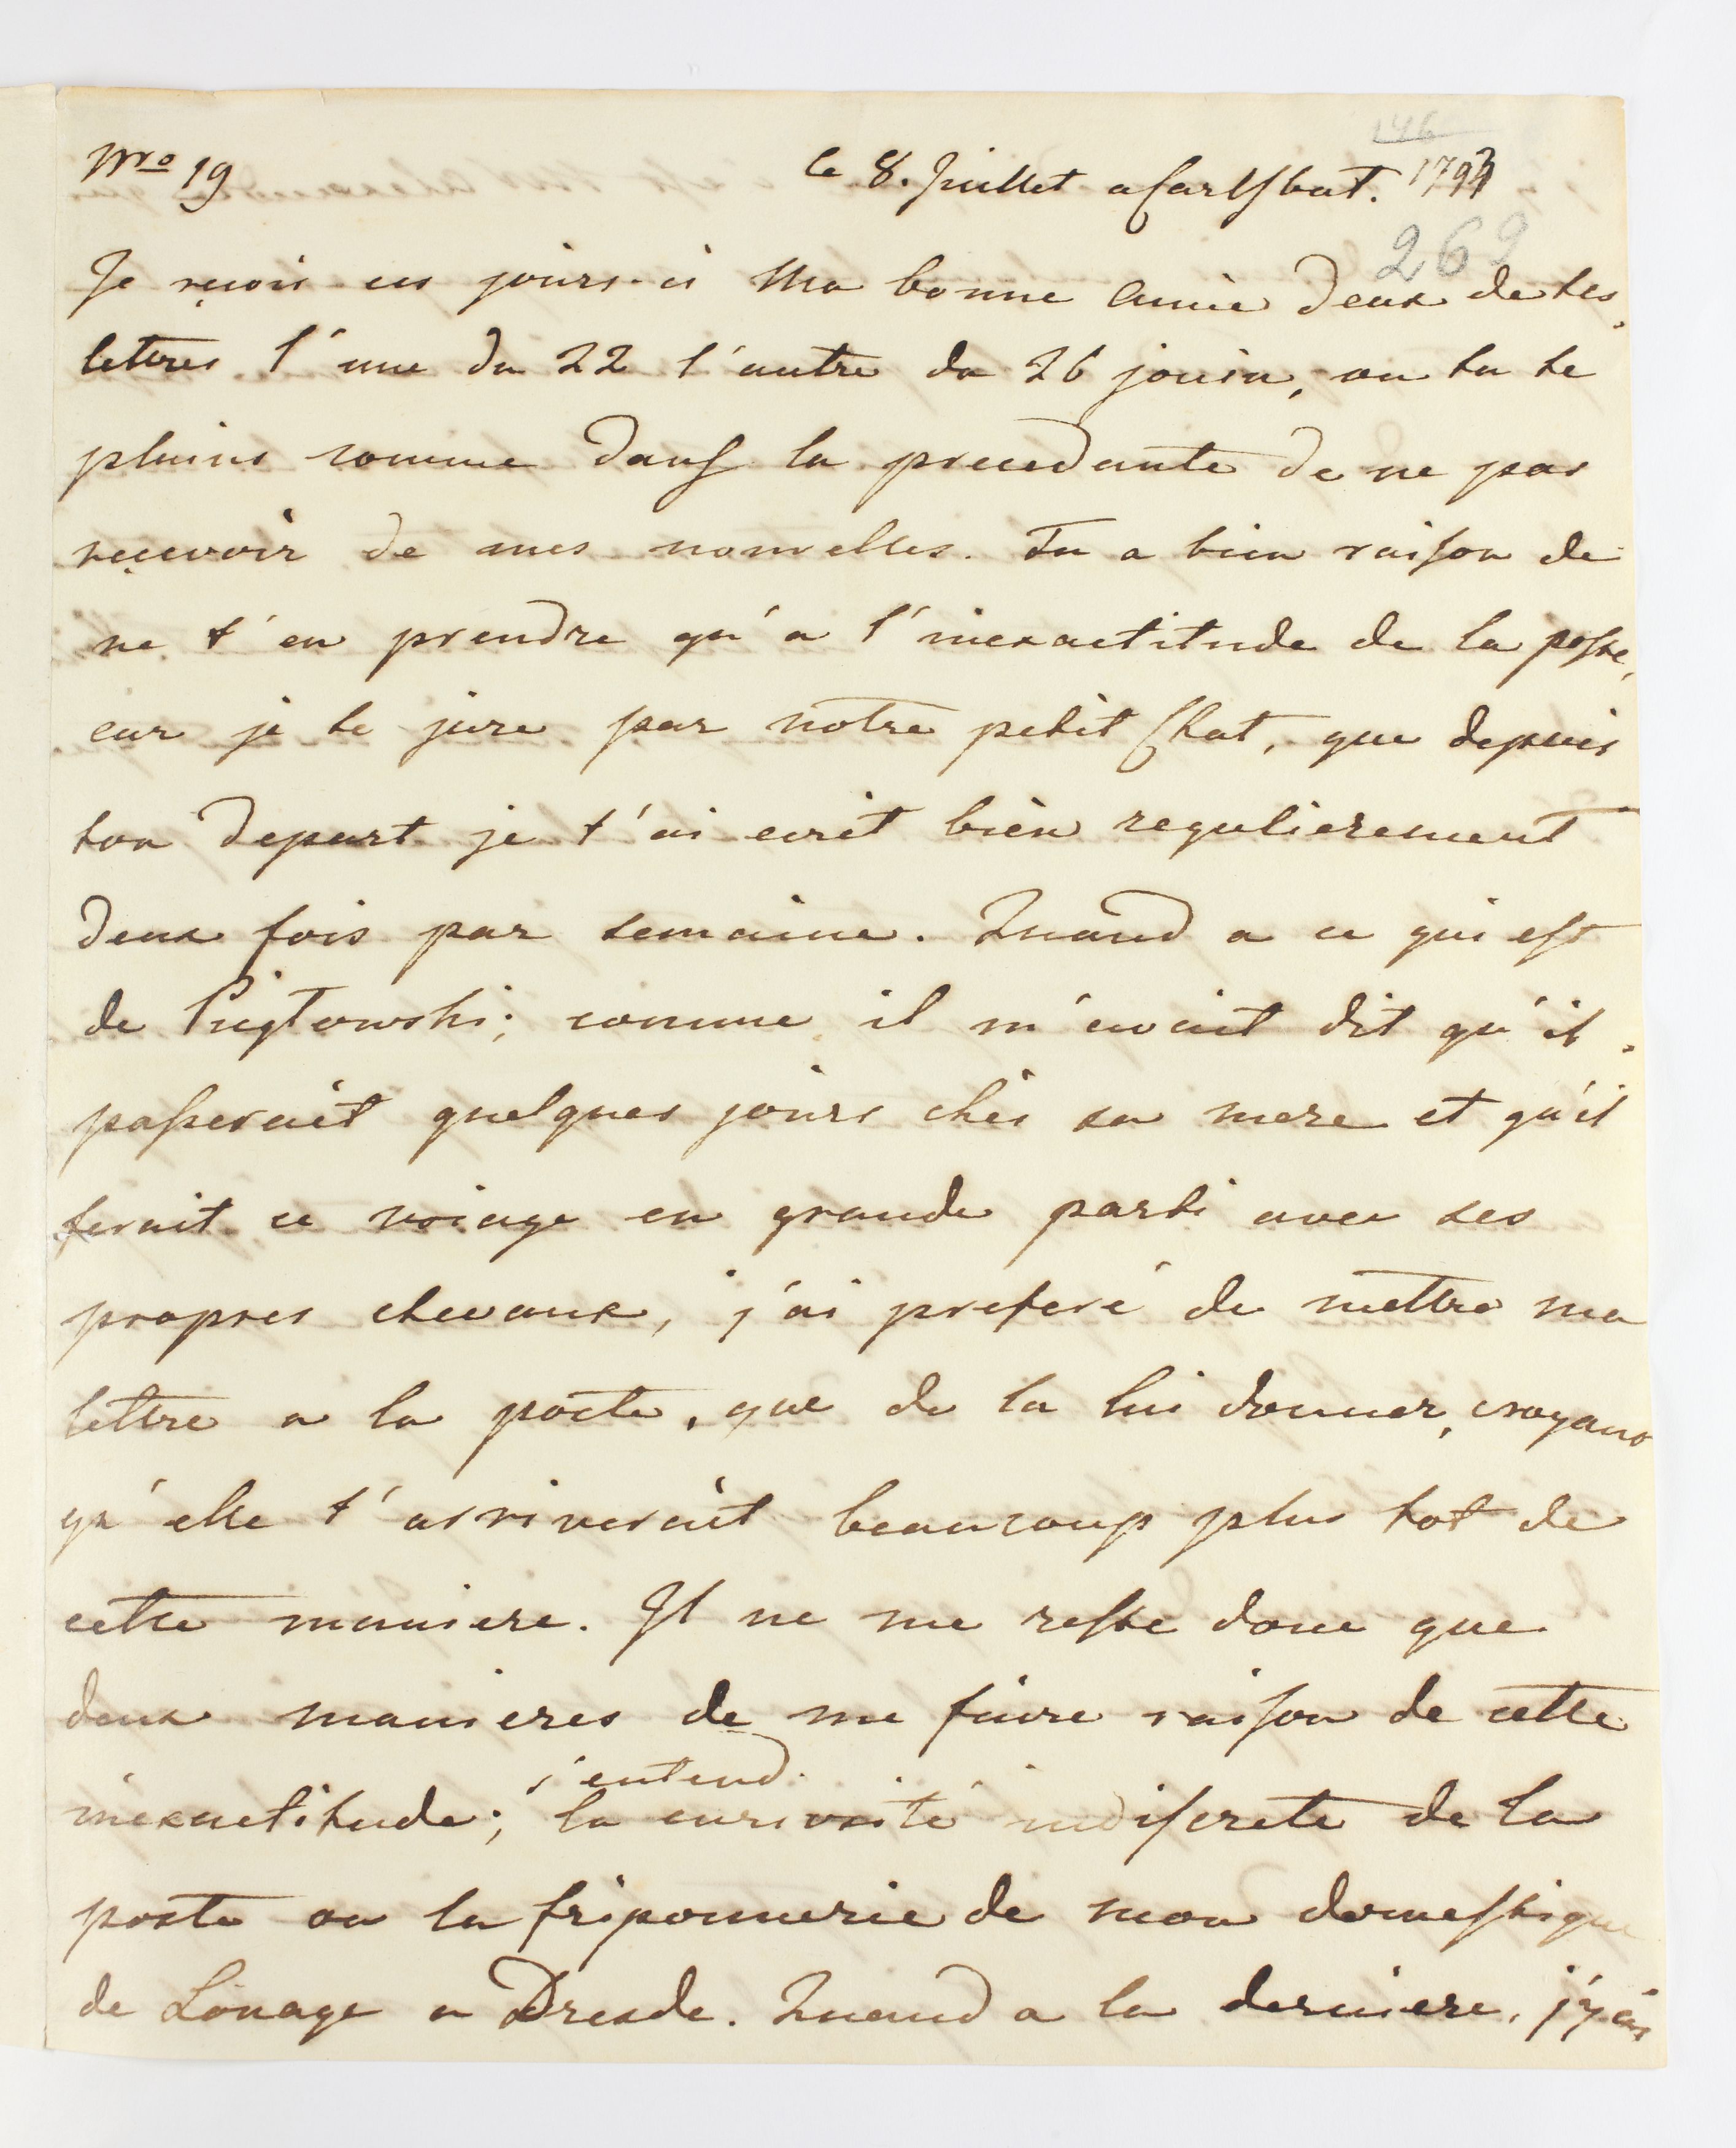 146
Nro 19 le 8. Juillet a Carlsbat. 1793
269
Je reçois ces jours-ci Ma bonne Amie deux de tes
lettres l'une du 22 l'autre du 26 jouin, ou tu te
plains comme dans la precedante de ne pas
reçevoir de mes nouvelles. Tu a bien raison de
ne t'en prendre qu'a l'inexactitude de la poste,
car je te jure par notre petit Chat, que depuis
ton depart je t'ai ecrit bien regulierement
deux fois par semaine. Quand a ce qui est
de comme il m'avait dit qu'il
passerait quelques jours chés sa mere et qu'il
ferait ce voiage en grande parti avec ses
propres chevaux, j'ai preferé de mettre ma
lettre a la poste, que de la lui donner, croyant
qu'elle t'arriverait beaucoup plus tot de
cette maniere. Il ne me reste donc que
deux manieres de me faire raison de cette
s'entend.
inexactitude; la curiosité indiscrete de la
poste ou la friponnerie de mon domestique
de Louage a Dresde. Quand a la derniere, j'y ai